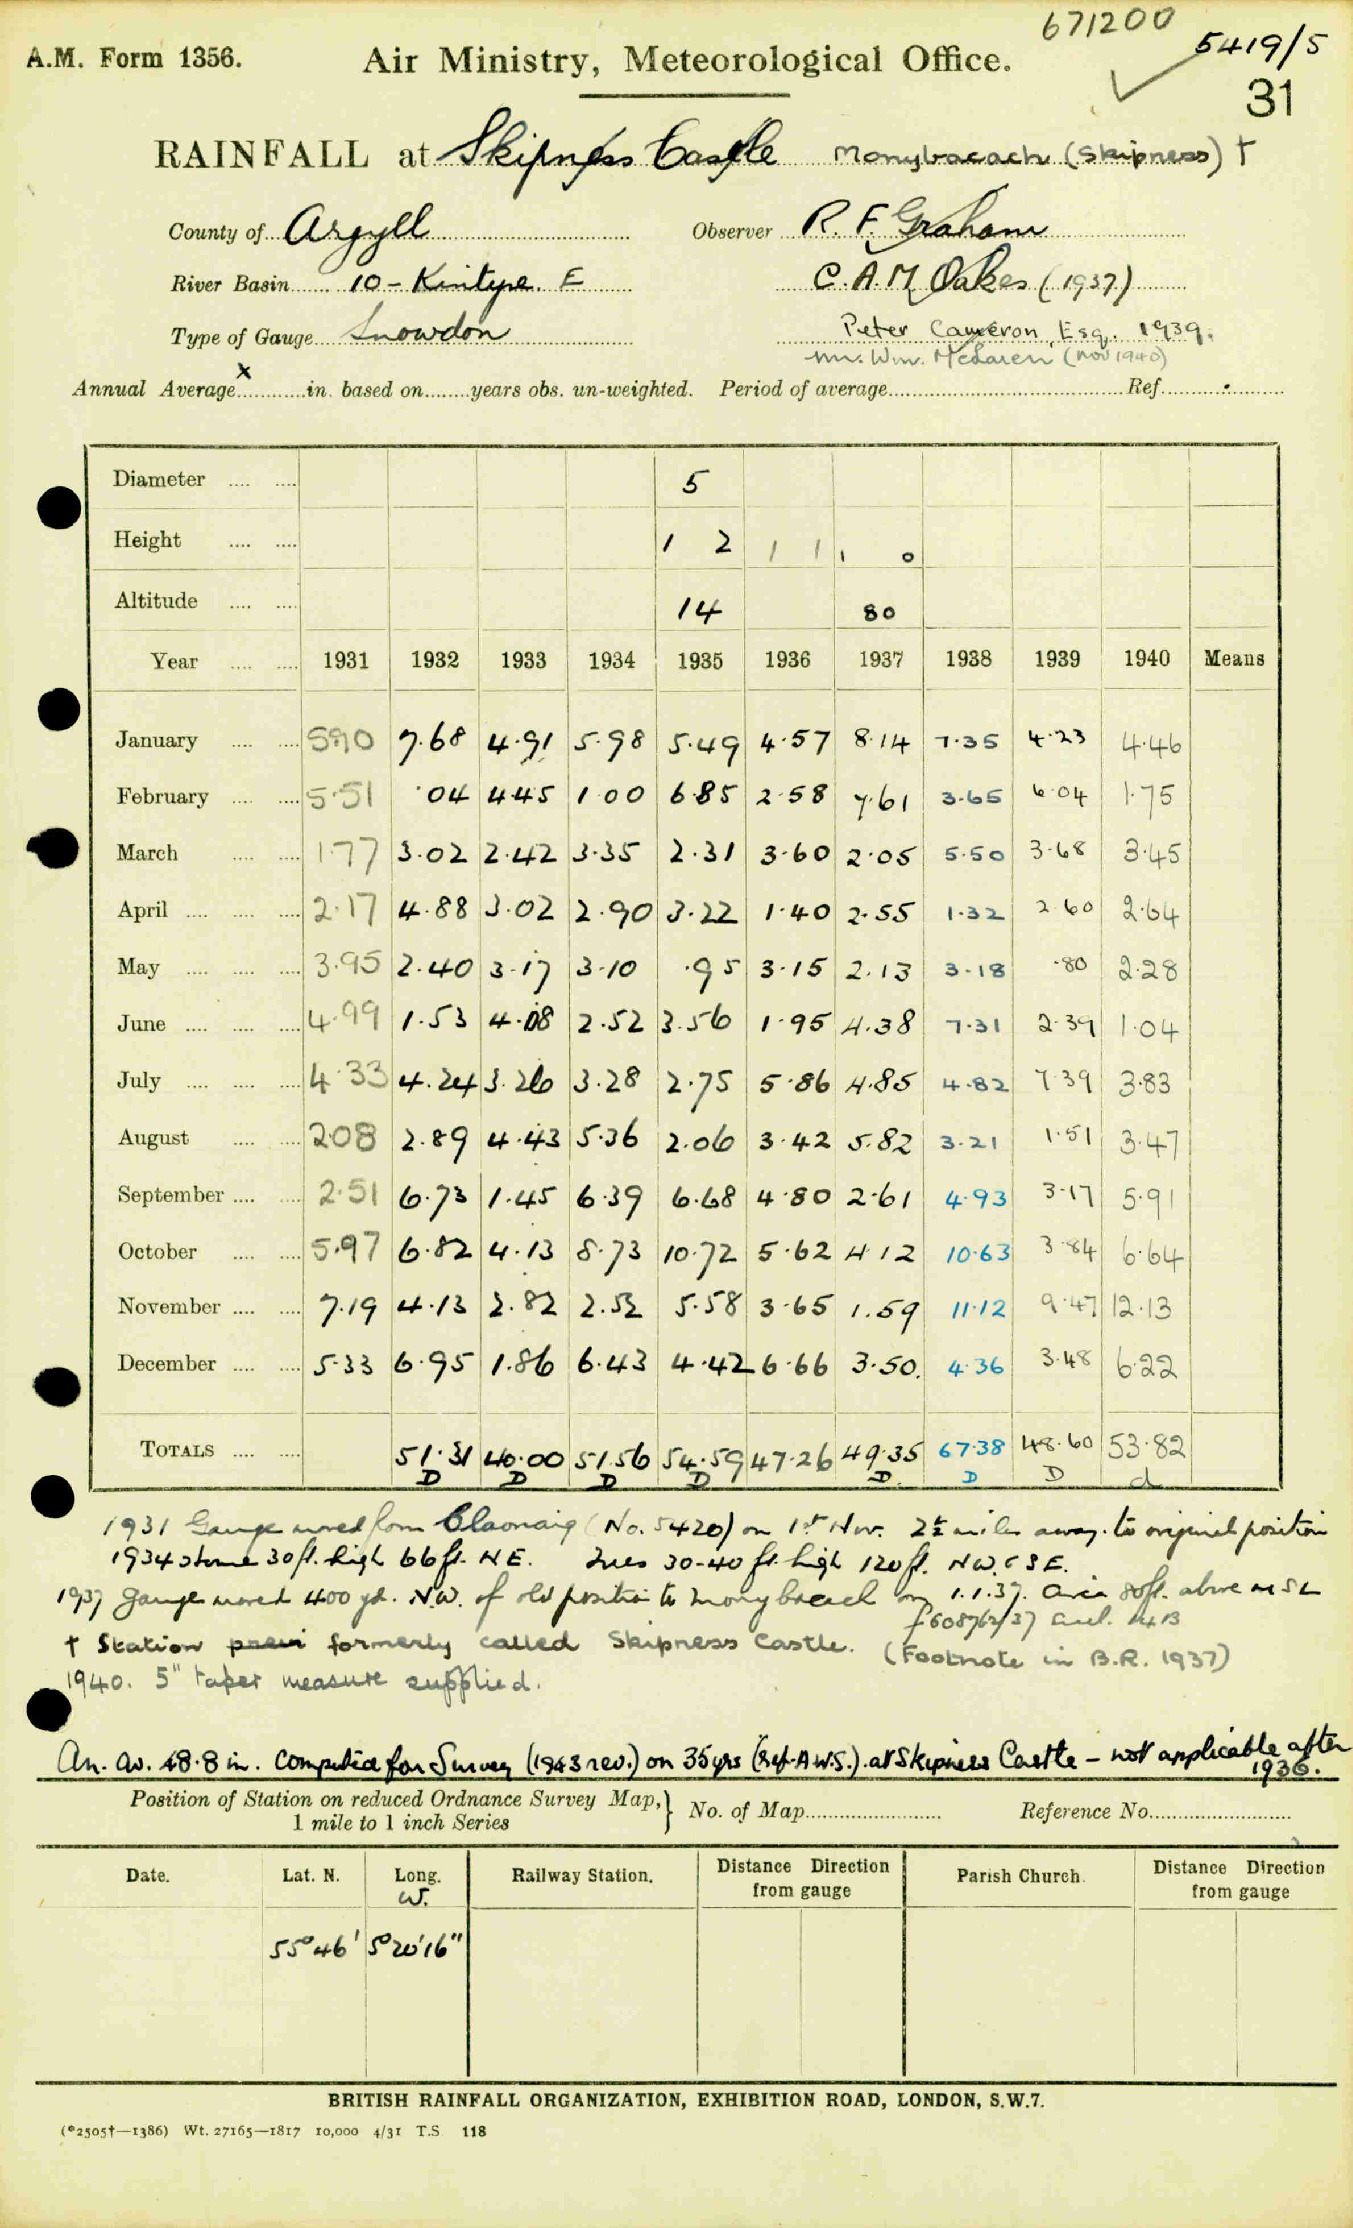 671200
5419/5
A.M. Form 1356.
Air Ministry, Meteorological Office.
31
RAINFALL at Skipness Castle Monybacach (Skipness) †
County of Argyll Observer R. F. Graham
River Basin 10 - Kintyre. E C. A. M. Oakes (1937)
Type of Gauge Snowdon Peter Cameron, Esq. 1939.
Mr. Wm. McLaren (Nov 1940)
x
Annual Average in. based on years obs. un-weighted. Period of average Ref
Diameter 5
Height 1 2 1 1 1 0
Altitude 14 80
Year 1931 1932 1933 1934 1935 1936 1937 1938 1939 1940 Means
January 5.90 7.68 4.91 5.98 5.49 4.57 8.14 7.35 4.23 4.46
February 5.51 .04 4.45 1.00 6.85 2.58 7.61 3.65 6.04 1.75
March 1.77 3.02 2.42 3.35 2.31 3.60 2.05 5.50 3.68 3.45
April 2.17 4.88 3.02 2.90 3.22 1.40 2.55 1.32 2.60 2.64
May 3.95 2.40 3.17 3.10 .95 3.15 2.13 3.18 .80 2.28
June 4.99 1.53 4.08 2.52 3.56 1.95 4.38 7.31 2.39 1.04
July 4.33 4.24 3.26 3.28 2.75 5.86 4.85 4.82 7.39 3.83
August 2.08 2.89 4.43 5.36 2.06 3.42 5.82 3.21 1.51 3.47
September 2.51 6.73 1.45 6.39 6.68 4.80 2.61 4.93 3.17 5.91
October 5.97 6.82 4.13 8.73 10.72 5.62 4.12 10.63 3.84 6.64
November 7.19 4.13 2.82 2.52 5.58 3.65 1.59 11.12 9.47 12.13
December 5.33 6.95 1.86 6.43 4.42 6.66 3.50 4.36 3.48 6.22
TOTALS 51.31 40.00 51.56 54.59 47.26 49.35 67.38 48.60 53.82
D D D D D D D d
1931 Gauge moved from Claonaig (No. 5420) on 1st Nov. 2½ miles away to original position
1934 stone 30 ft. high 66 ft. NE. Trees 30-40 ft. high 120 ft. NW & SE.
1937 gauge moved 400 yd. N.W. of old position to Monybacach on 1.1.37. Circa 80ft. above MSL
† Station formerly called Skipness Castle. (Footnote in B.R. 1937)
1940. 5" taper measure supplied.
An. av. 48.8 in. computed for Survey (1943 rev.) on 35 yrs (Ref. A.W.S.) at Skipness Castle - not applicable after
1936.
Position of Station on reduced Ordnance Survey Map, } No. of Map Reference No.
1 mile to 1 inch Series
Date. Lat. N. Long. W. Railway Station. Distance Direction from gauge Parish Church. Distance Direction from gauge
55° 46' 5° 20' 16"
BRITISH RAINFALL ORGANIZATION, EXHIBITION ROAD, LONDON, S.W.7.
(*2505†—1386) Wt. 27165—1817 10,000 4/31 T.S 118